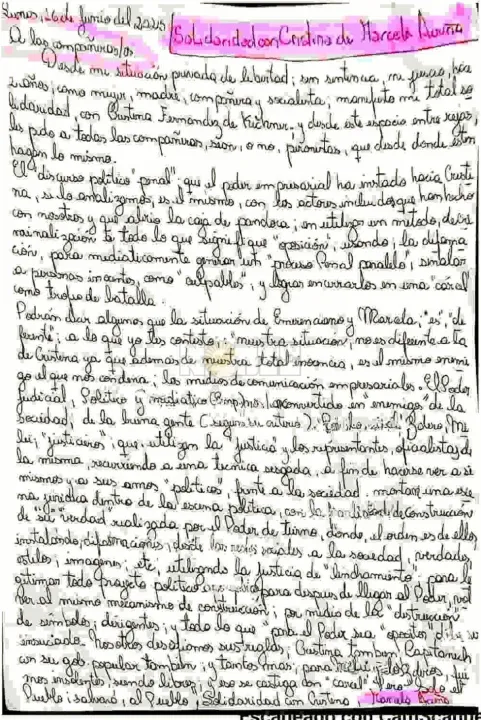 Lunes, 16 de Junio del 2025 / Solidaridad con Cristina de Marcela Acuña
A los compañeros/as
Desde mi situación privada de libertad; sin sentencia, ni juicio, hace
2 años; como mujer, madre, compañera y socialista; manifiesto mi total so
lidaridad, con Cristina Fernandez de Kirchner. y desde este espacio entre rejas,
les pido a todas las compañeras, sean, o no, peronistas, que desde donde esten
hagan lo mismo.
El "discurso político" penal", que el poder empresarial ha instado hacia Cristi
na, si lo analizamos, es el mismo, con los actores incluidos que han hecho
con nosotros y que abrio la caja de pandora; en utilizar un método, de cri
minalización te todo lo que signifique "oposición", usando; la difama
ción, para mediaticamente generar un "proceso Penal paralelo", señalar
a personas inocentes, como "culpables", y lograr encerrarlos en una "carcel"
como trofeo de batalla.
Podrán decir algunos que la situación de Emerenciano y Marcela, "es", "di
ferente"; a lo que yo les contesto; nuestra situación, no es diferente a la
de Cristina ya que además de nuestra total inocencia, es el mismo enemi
go el que nos condena; los medios de comunicación empresariales. El Poder
Judicial, Político y mediatico convertido en "enemigo" de la
sociedad; de la buena gente (segun su criterio).
lei; "justicieros", que utilizan la "justicia" y los representantes, oficialistas de
la misma, recurriendo a una tecnica sesgada, a fin de hacerse ver a si
mismos y a sus amos "politicos", frente a la sociedad. montan una esce
na juridica dentro de la escena política, con la finalidad de construcción
de su "verdad" realizada por el Poder de turno, donde, el orden es de ellos
instalando, difamaciones; desde las redes sociales a la sociedad, verdades,
estilos; imagenes; etc, utilizando la justicia de "linchamiento"; para le
gitimar todo proyecto político para despues de llegar al Poder, vol
ver al mismo mecanismo de construcción; por medio de la "destrucción"
de simbolos; dirigentes; y todo lo que para el Poder sea "opositor"
enjuiciado. Nosotros desafiamos sus reglas; Cristina tambien, Capitanich
con su gob. popular tambien; y tantos mas; para
mos insolentes; siendo libres, y eso se castiga con "carcel"
Pueblo; salvará, al Pueblo. Solidaridad con Cristina, Marcela Acuña